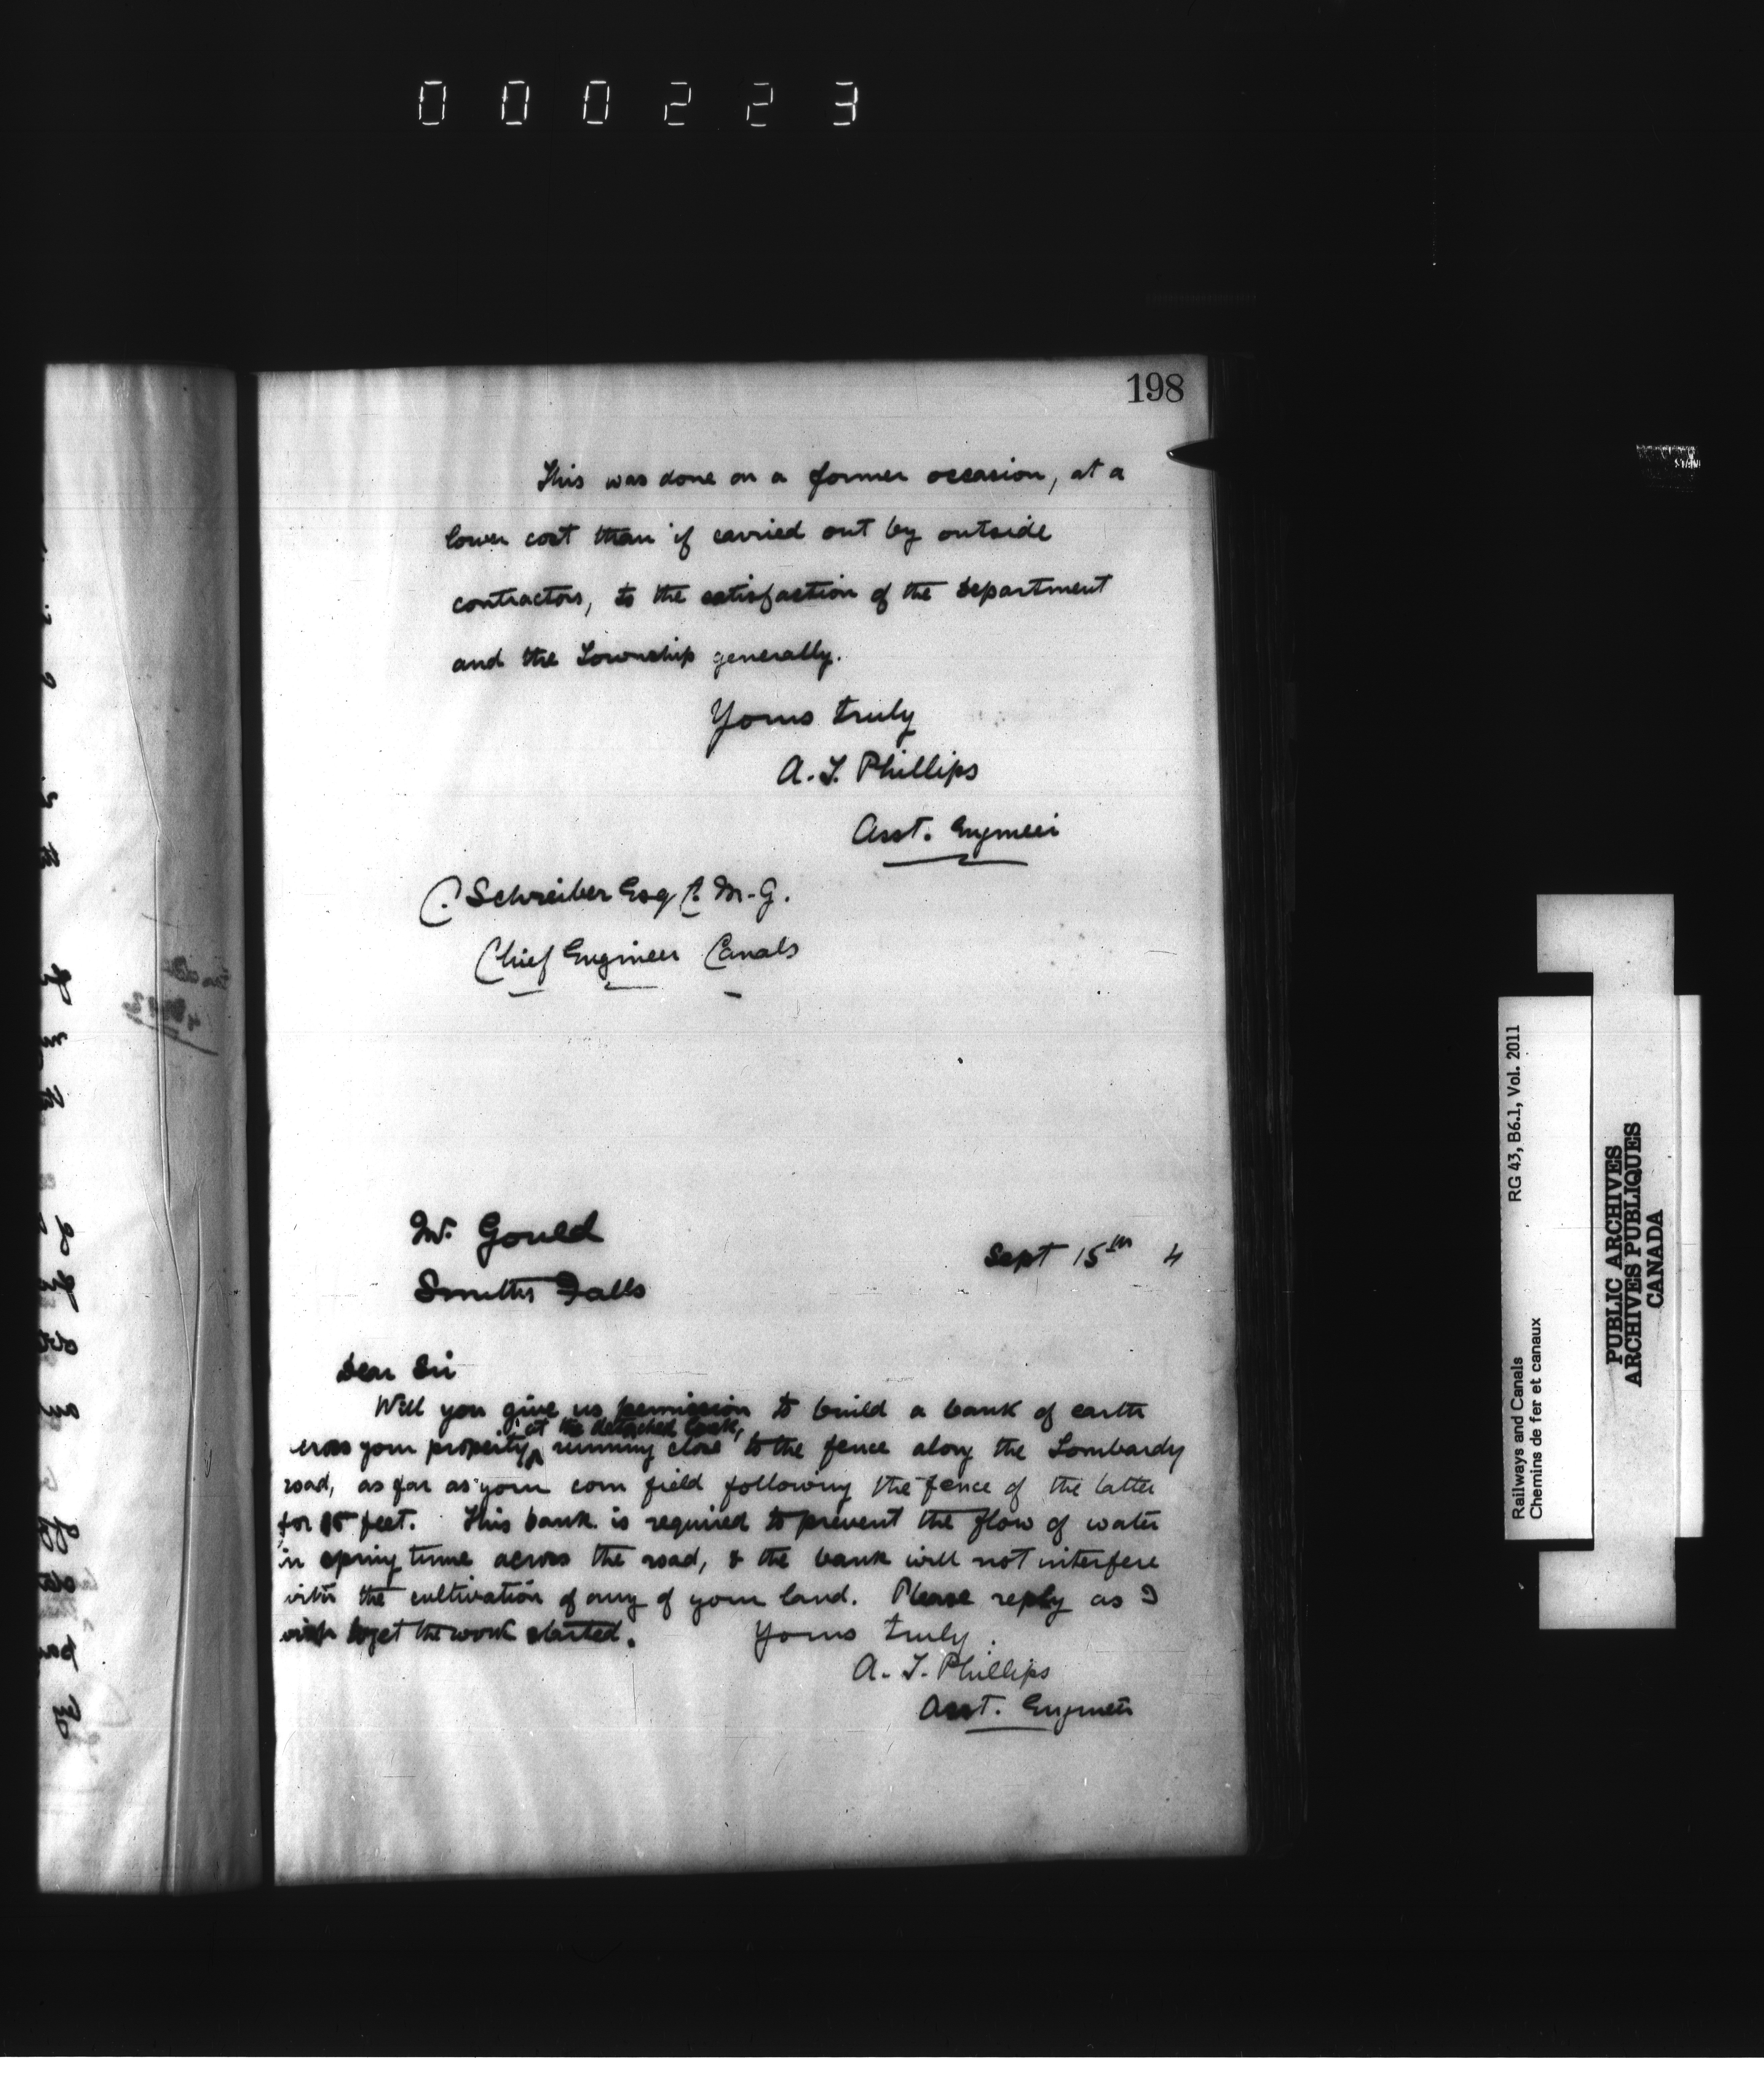 000223
198
This was done on a former occasion, at a
lower cost than if carried out by outside
contractors, to the satisfaction of the Department
and the Township generally.
Yours truly
A. T. Phillips
Asst. Engineer
C. Schreiber Esq C. M. G.
Chief Engineer Canals
Mr. Gould
Smiths Falls
Sept 15th 4
Dear Sir
Will you give us permission to build a bank of earth
at the detached lock,
across your property, running close to the fence along the Lombardy
road, as far as your corn field following the fence of the latter
for feet. This bank is required to prevent the flow of water
in spring time across the road, & the bank will not interfere
with the cultivation of any of your land. Please reply as I
wish to get the work started. Yours truly.
A. T. Phillips
Asst. Engineer
Railways and Canals RG 43, B6.1, Vol. 2011
Chemins de fer et canaux
PUBLIC ARCHIVES
ARCHIVES PUBLIQUES
CANADA